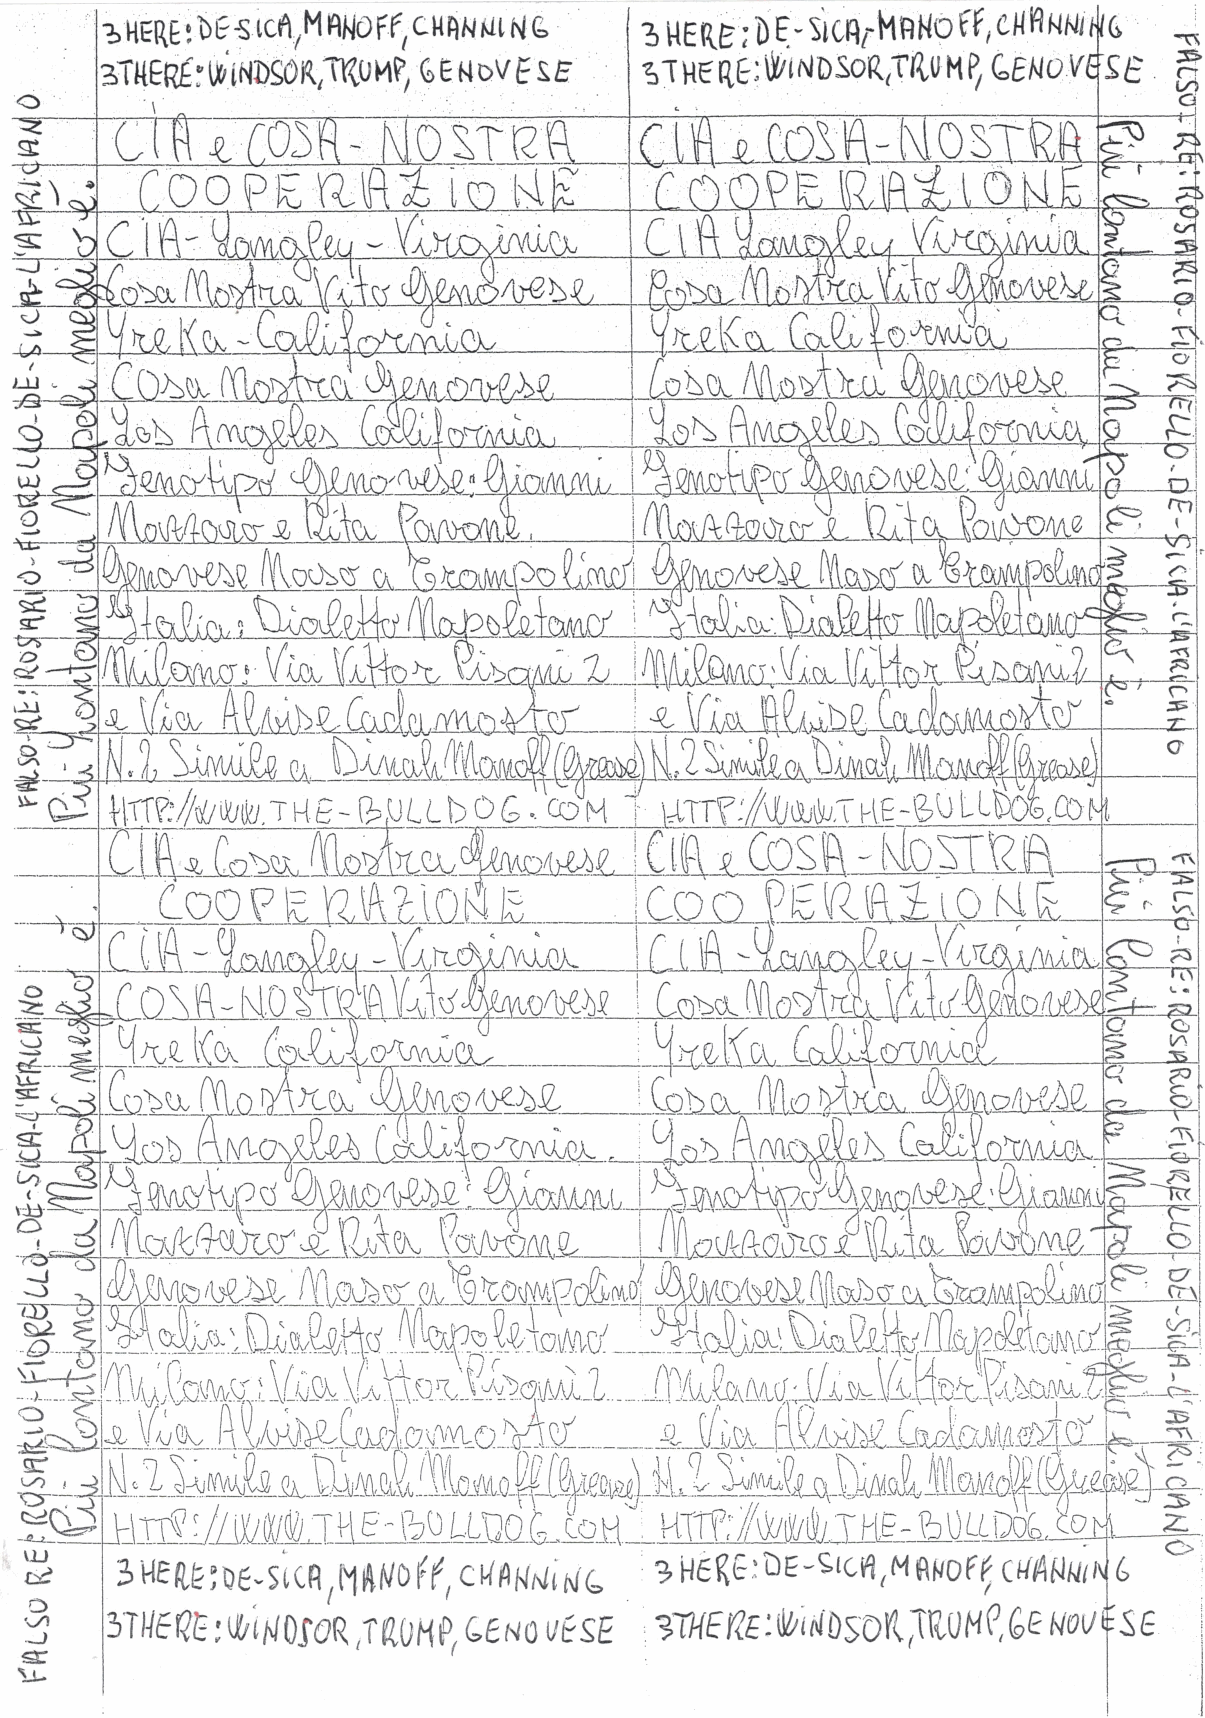 3 HERE: DE-SICA, MANOFF, CHANNING
3 THERE: WINDSOR, TRUMP, GENOVESE
CIA e COSA-NOSTRA
COOPERAZIONE
CIA-Langley-Virginia
Cosa Nostra Vito Genovese
Yreka-California
Cosa Nostra Genovese
Los Angeles California
Genotipo Genovese: Gianni
Nazzaro e Rita Pavone.
Genovese Naso a Trampolino
Italia: Dialetto Napoletano
Milano: Via Vittor Pisani 2
e Via Alvise Cadamosto
N.2 Simile a Dinah Manoff (Grease)
HTTP://WWW.THE-BULLDOG.COM
CIA e Cosa Nostra Genovese
COOPERAZIONE
CIA-Langley-Virginia
COSA-NOSTRA Vito Genovese
Yreka California
Cosa Nostra Genovese
Los Angeles California.
Genotipo Genovese: Gianni
Nazzaro e Rita Pavone
Genovese Naso a Trampolino
Italia: Dialetto Napoletano
Milano: Via Vittor Pisani 2
e Via Alvise Cadamosto
N.2 Simile a Dinah Manoff (Grease)
HTTP://WWW.THE-BULLDOG.COM
3 HERE: DE-SICA, MANOFF, CHANNING
3 THERE: WINDSOR, TRUMP, GENOVESE
3 HERE: DE-SICA, MANOFF, CHANNING
3 THERE: WINDSOR, TRUMP, GENOVESE
CIA e COSA-NOSTRA
COOPERAZIONE
CIA Langley Virginia
Cosa Nostra Vito Genovese
Yreka California
Cosa Nostra Genovese
Los Angeles California
Genotipo Genovese: Gianni
Nazzaro e Rita Pavone
Genovese Naso a Trampolino
Italia: Dialetto Napoletano
Milano: Via Vittor Pisani 2
e Via Alvise Cadamosto
N.2 Simile a Dinah Manoff (Grease)
HTTP://WWW.THE-BULLDOG.COM
CIA e COSA-NOSTRA
COOPERAZIONE
CIA-Langley-Virginia
Cosa Nostra Vito Genovese
Yreka California
Cosa Nostra Genovese
Los Angeles California
Genotipo Genovese: Gianni
Nazzaro e Rita Pavone
Genovese Naso a Trampolino
Italia: Dialetto Napoletano
Milano: Via Vittor Pisani 2
e Via Alvise Cadamosto
N.2 Simile a Dinah Manoff (Grease)
HTTP://WWW.THE-BULLDOG.COM
3 HERE: DE-SICA, MANOFF, CHANNING
3 THERE: WINDSOR, TRUMP, GENOVESE
FALSO-RE: ROSARIO-FIORELLO-DE-SICA-L'AFRICANO
Più Lontano da Napoli meglio è.
FALSO RE: ROSARIO-FIORELLO-DE-SICA-L'AFRICANO
Più lontano da Napoli meglio è.
FALSO-RE: ROSARIO-FIORELLO-DE-SICA-L'AFRICANO
Più lontano da Napoli meglio è.
FALSO-RE: ROSARIO-FIORELLO-DE-SICA-L'AFRICANO
Più lontano da Napoli meglio è.